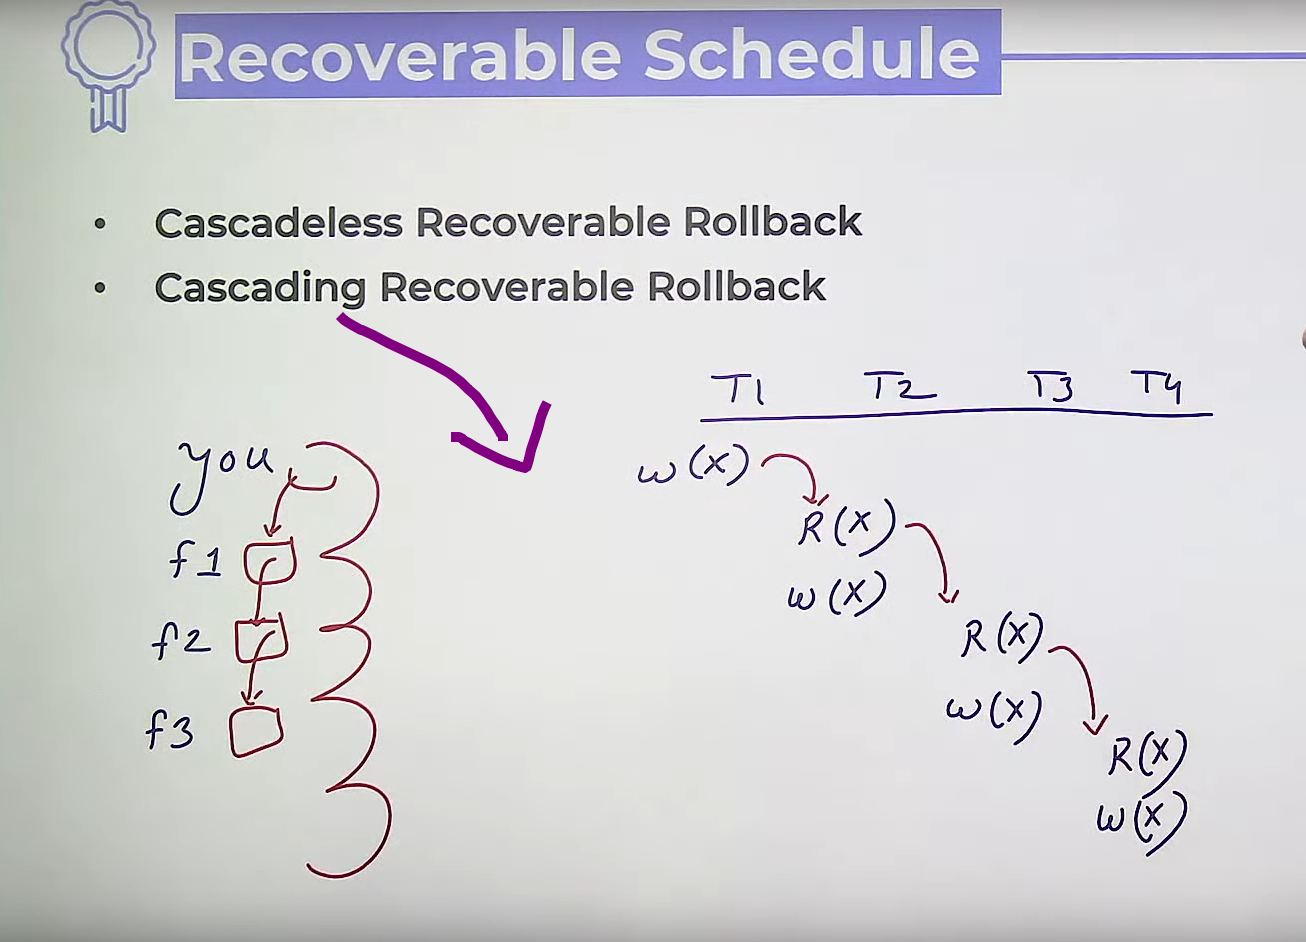 Recoverable Schedule
• Cascadeless Recoverable Rollback
• Cascading Recoverable Rollback
T1 T2 T3 T4
you
w(x)
R(x)
f1
w(x)
f2
R(x)
w(x)
f3
R(x)
w(x)